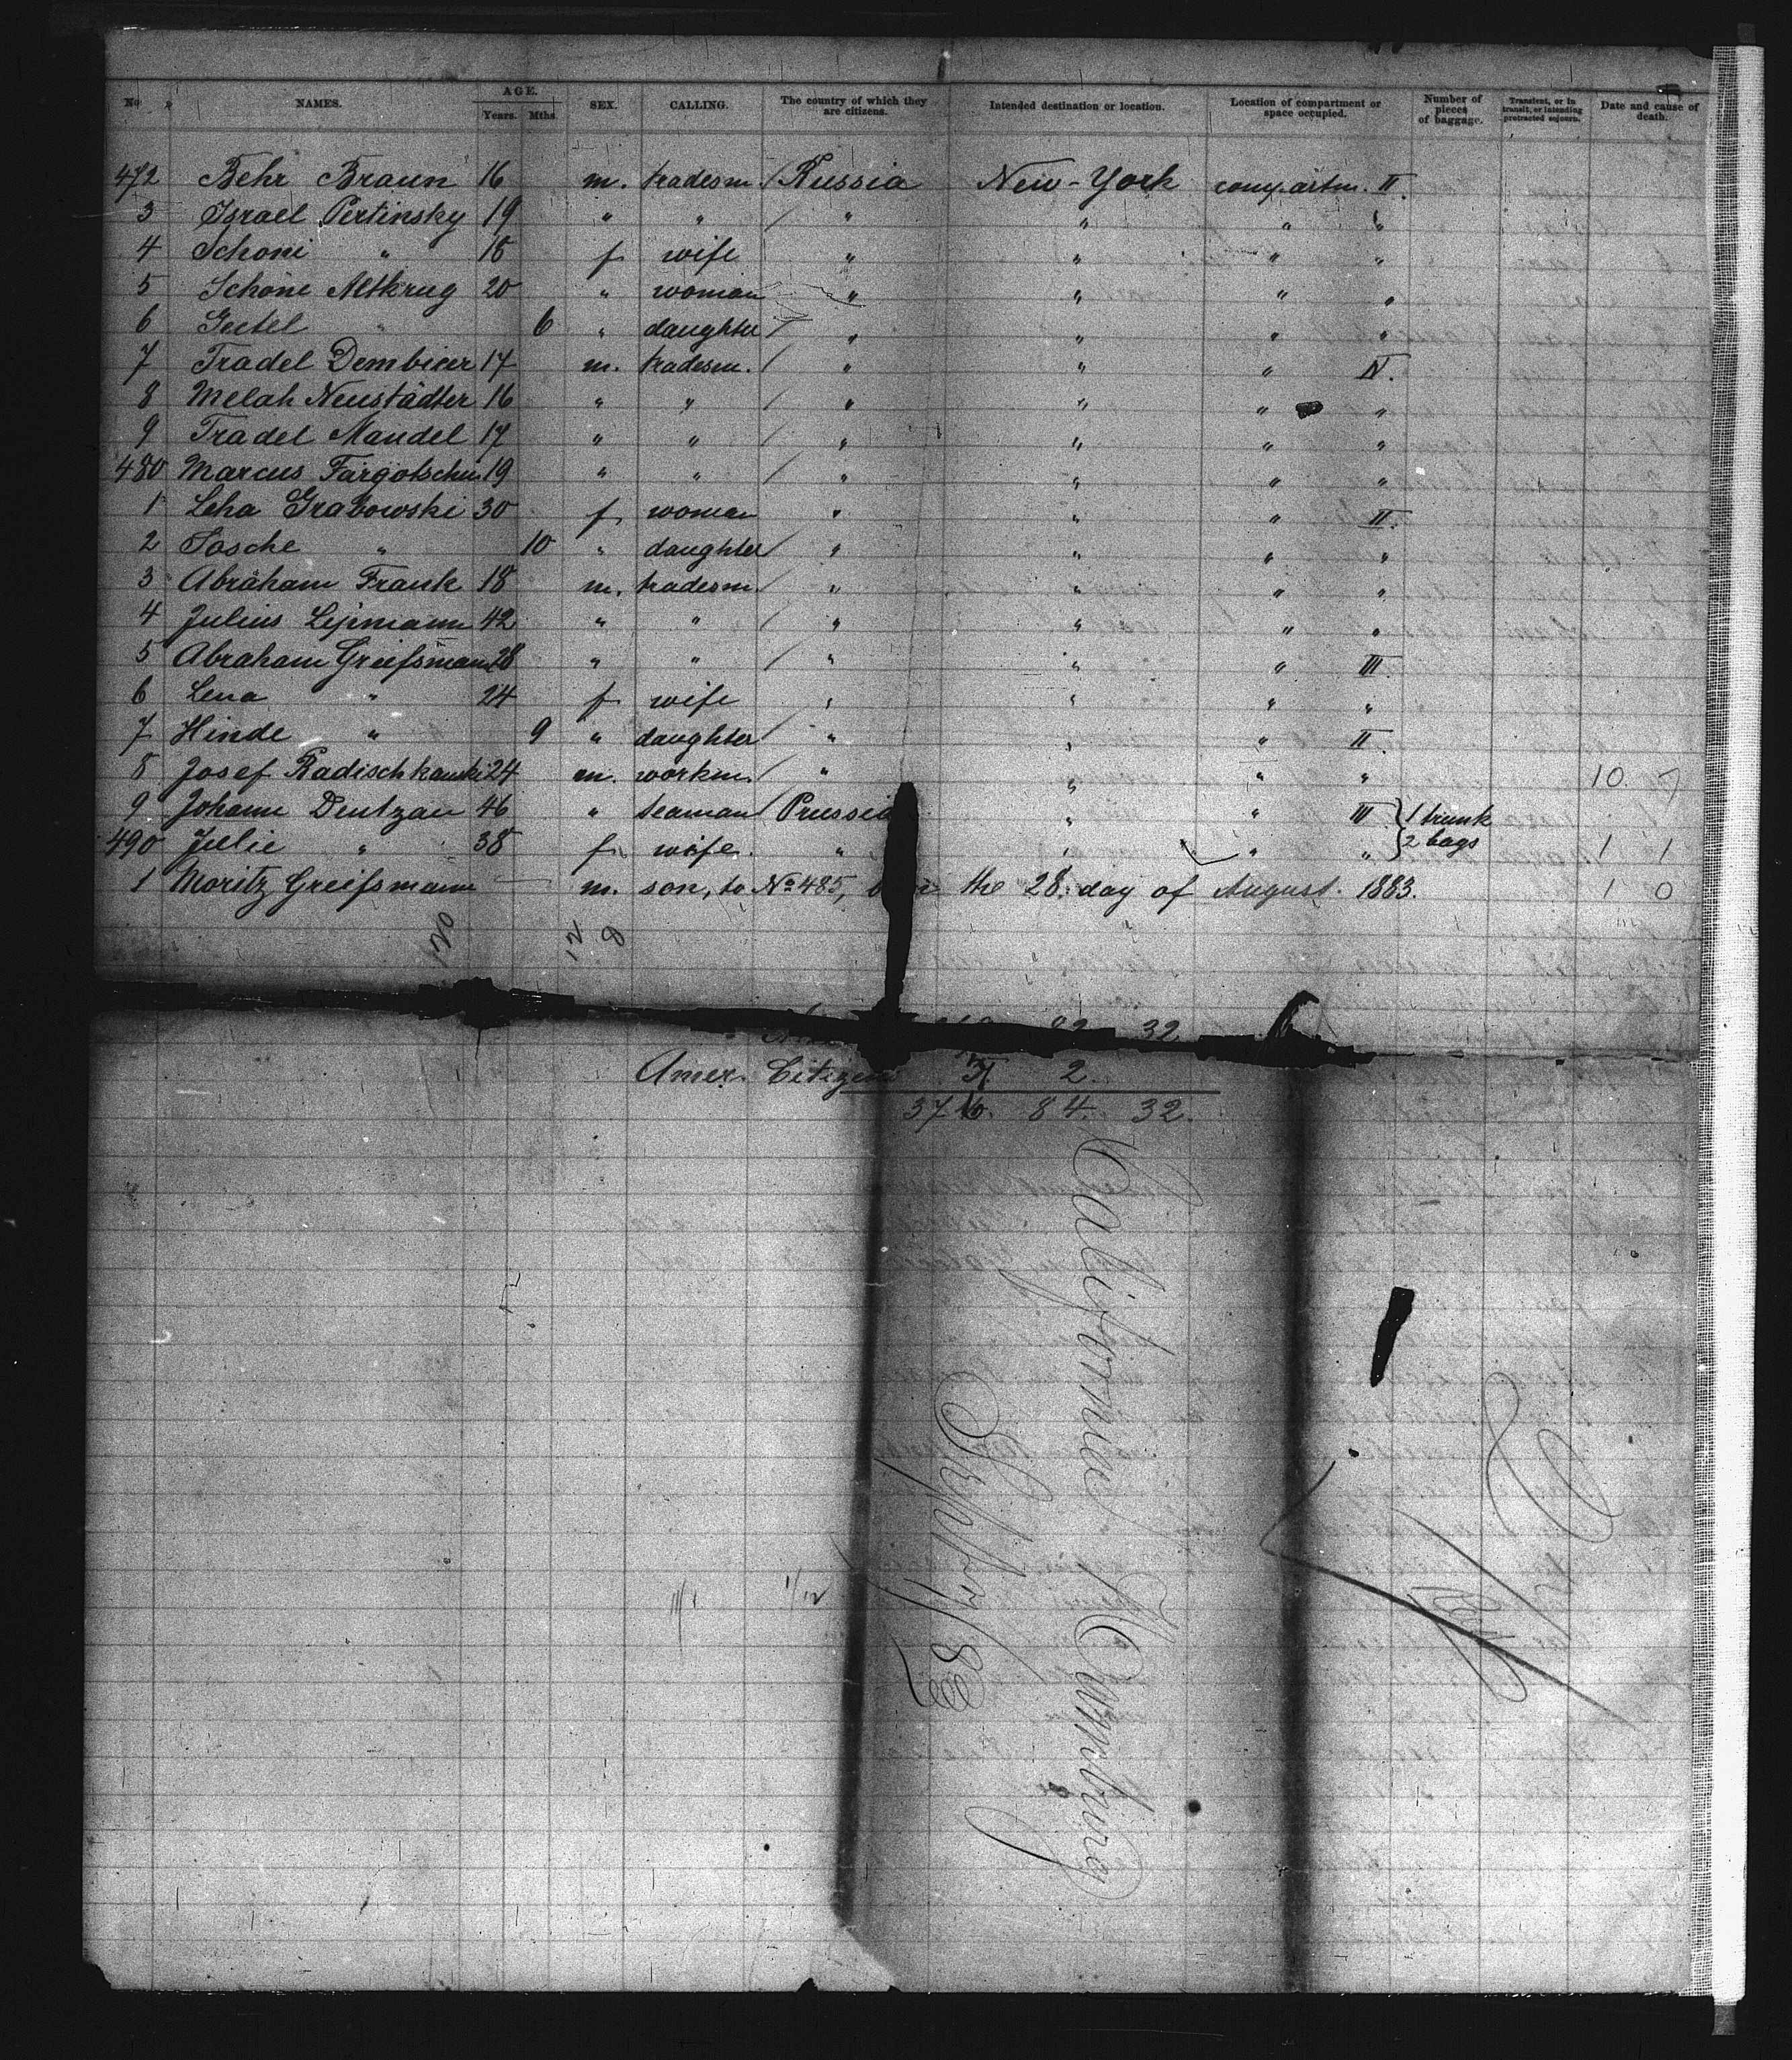 No NAMES. AGE. Years. Mths. SEX. CALLING. The country of which they are citizens. Intended destination or location. Location of compartment or space occupied. Number of pieces of baggage. Transient, or in transit, or intending protracted sojourn. Date and cause of death.
472 Behr Braun 16 m. tradesm. / Russia New-York compartm. II.
3 Israel Pertinsky 19 " " / " " " "
4 Schoni " 18 f wife " " " "
5 Schöne Altkrug 20 " woman " " " "
6 Gectel " 6 " daughter / " " " "
7 Tradel Dembicer 17 m. tradesm. / " " " IV.
8 Melah Neustädter 16 " " / " " " "
9 Tradel Mandel 17 " " / " " " "
480 Marcus 19 " " / " " " "
1 Leha Grabowski 30 f. woman " " " II.
2 Tosche " 10 " daughter / " " " "
3 Abraham Frank 18 m. tradesm. / " " " "
4 Julius Lipmann 42 " " / " " " "
5 Abraham Greifsmann 28 " " / " " " III.
6 Lena " 24 f wife " " " "
7 Hinde " 9 " daughter / " " " II.
8 Josef Radischkowski 24 m. workm. / " " " " 10. 7
9 Johann Dentzau 46 " seaman / Prussia " " III } 1 trunk
490 Julie " 38 f. wife. " " " " } 2 bags 1 1
1 Moritz Greifsmann — m. son, to No 485, the 28. day of August. 1883. 1 0
120 12 8
82 32
Amer. Citizens 2.
376. 84. 32.
California Hamburg
Sept 10/83
1/12